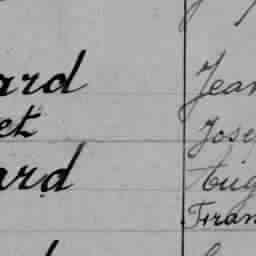 ard Jean
et Jose
ard Aug
Fran